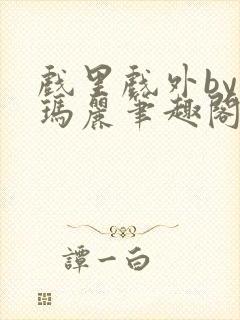 戲里戲外by
瑪麗筆趣閣
譚一白